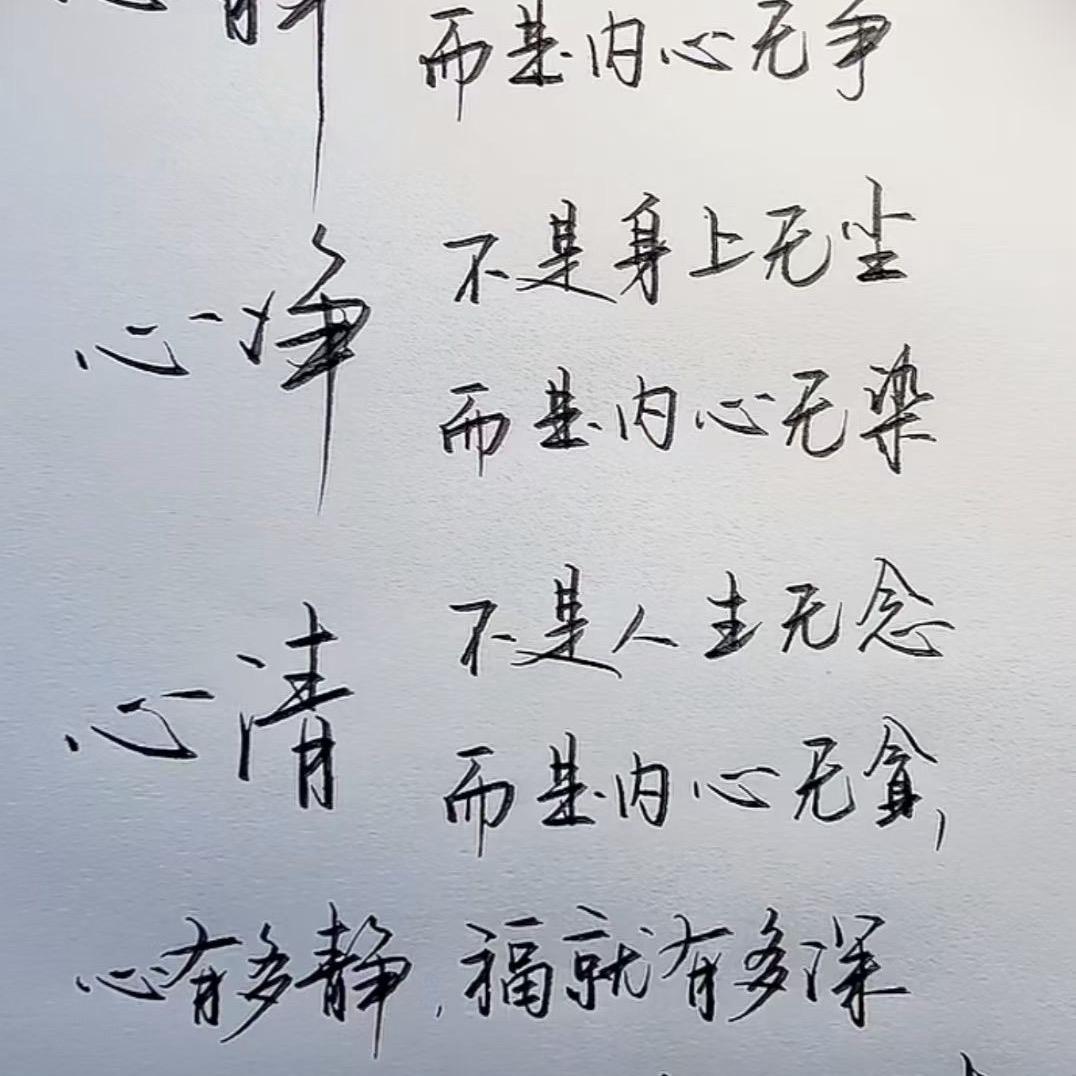 心静
而是内心无争
不是身上无尘
心净
而是内心无染
不是人生无念
心清
而是内心无贪,
心有多静,福就有多深